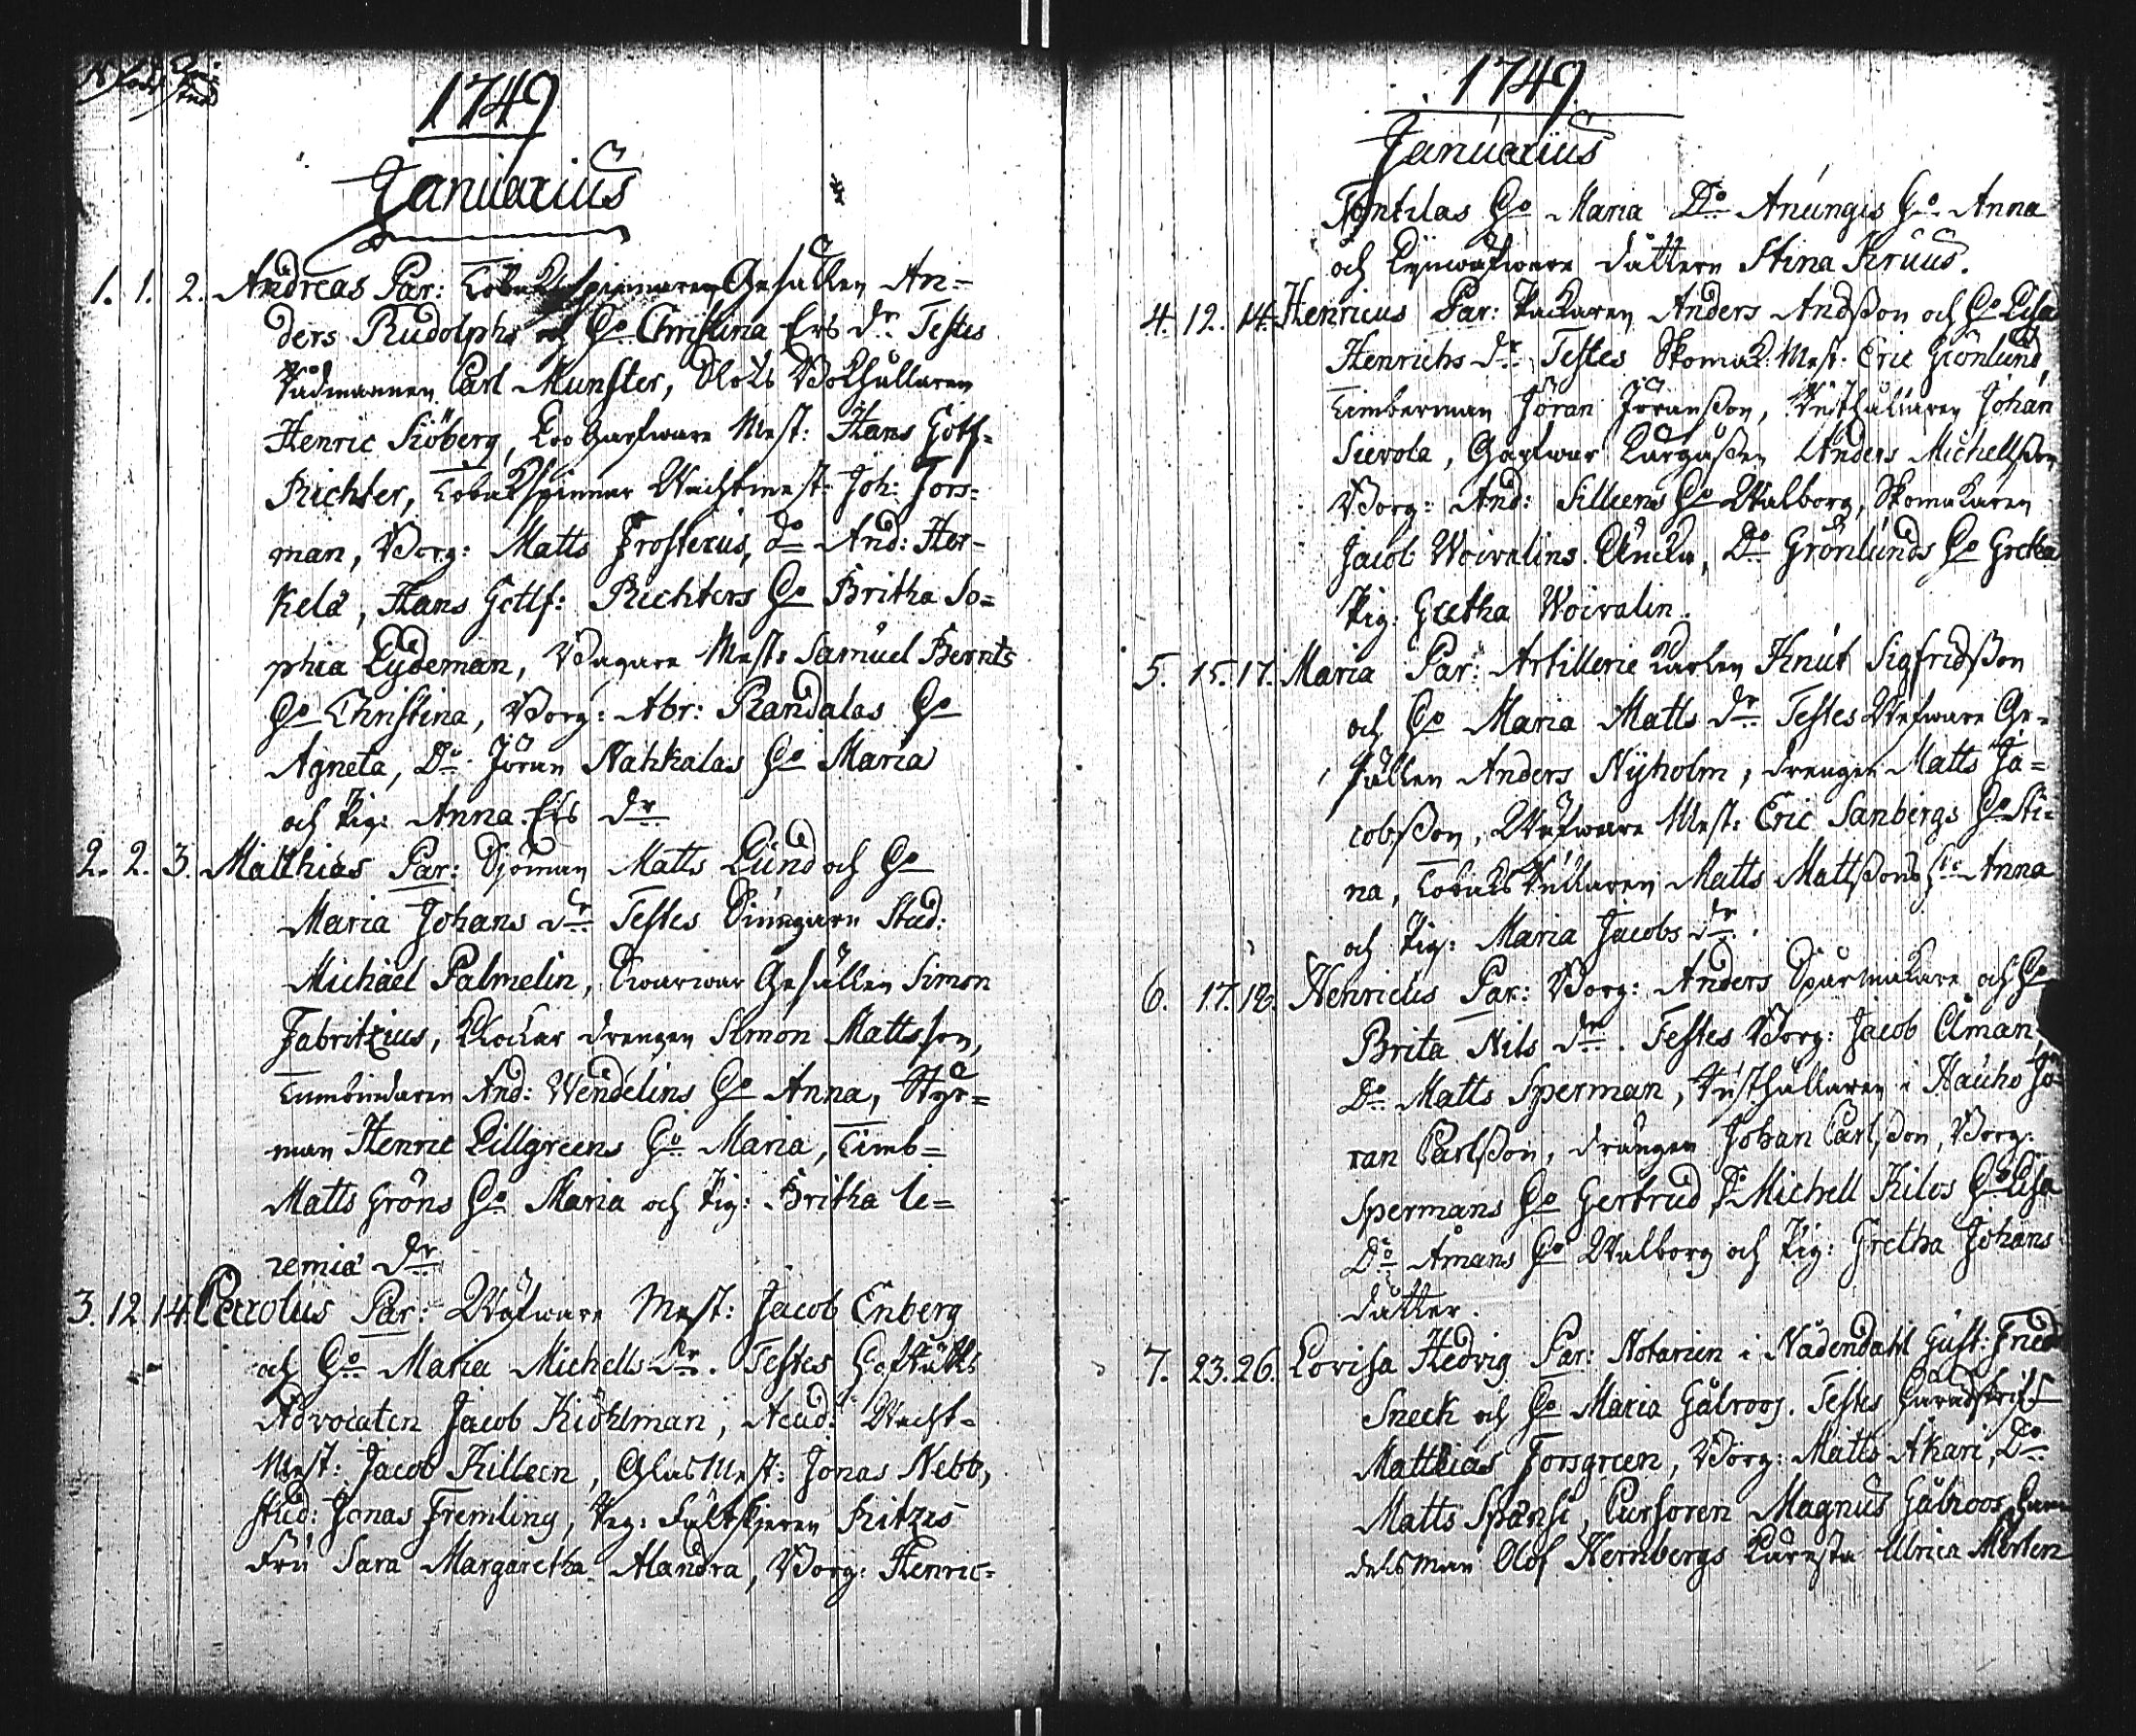 1749
Januarius
1. 1. 2. Andreas Par: Tobakspinnaren Gesällen An=
ders Rudolphs och Ho Christina Ers dr Testes
Rådmannen Carl Munster, Slots Bokhållaren
Henric Siöberg, Logarfware Mest: Hans Gottf=
Richter, Tobakspinnar Wachtmest: Joh: Fors=
man, Borg: Matts Frosterus, do And: Her-
kela, Hans Gottf: Richters Ho Britha So=
phia Lydeman, Bagare Mest: Samuel Bernts
Ho Christina, Borg: Abr: Randalas Ho
Agneta, Do Jöran Nahkalas Ho Maria
och Pig: Anna Ers dr
2. 2. 3. Matthias Par: Sjöman Matts Lund och Ho
Maria Johans dr Testes Stud:
Michael Palmelin, Swarwar Gesällen Simon
Fabritzius, Klockar drengen Simon Mattsson,
Tunbindaren And: Wendelins Ho Anna, Styr=
man Henric Lillgreens Ho Maria, Timb=
Matts Gröns Ho Maria och Pig: Britha Je=
remiæ dr
3. 12. 14. Carolus Par: Wäfware Mest: Jacob Enberg
och Ho Maria Michells dr. Testes Hofrätts
Advocaten Jacob Kiöhlman, Acad: Wacht=
Mest: Jacob Killeen, Glas Mest: Jonas Nebb,
Stud: Jonas Fremling, Reg: Fältskjeren Kitzes
Fru Sara Margaretha Alandra, Borg: Henric=
1749
Januarius
Tontilas Ho Maria Do Anungis Ho Anna
och Linwäfware dåttern Stina Kruus.
4. 12. 14. Henricus Par: Packaren Anders Andsson och Ho Lisa
Henrichs dr Testes Skomak: Mest: Eric Grönlund,
Timberman Jöran Jöransson, Rusthållaren Johan
Sierola, Garfwar Anders Michellsson
Borg: And: Silleens Ho Walborg, Skomakaren
Jacob Woivalins Änckia, Do Grönlunds Ho Gretha
Pig: Gretha Woivalin.
5. 15. 17. Maria Par: Artillerie Karlen Knut Sigfridsson
och Ho Maria Matts dr Testes Wäfware Ge=
sällen Anders Nyholm, drengen Matts Ja=
cobsson, Wäfware Mest: Eric Sanbergs Ho Sti=
na, Tobaks Matts Mattssons Ho Anna
och Pig: Maria Jacobs dr.
6. 17. 18. Henricus Par: Borg: Anders Spårmakare och Ho
Brita Nils dr. Testes Borg: Jacob Åman,
Do Matts Sperman, Rusthållaren i Hauho Jö=
ran Carlsson, drängen Johan Carlsson, Borg:
Spermans Ho Gertrud, Do Michell Kilos Ho Lisa
Do Åmans Ho Walborg och Pig: Gretha Johans
dåtter.
7. 23. 26. Lovisa Hedvig Par: Notarien i Nådendahl Gust: Fried
Sneck och Ho Maria Gålroos. Testes Häradskrif
Matthias Forsgreen, Borg: Matts Akari, Do
Matts Spånsi, Cursoren Magnus Gålroos, Lan
Olof Hernbergs Kiäresta Ulrica Merten